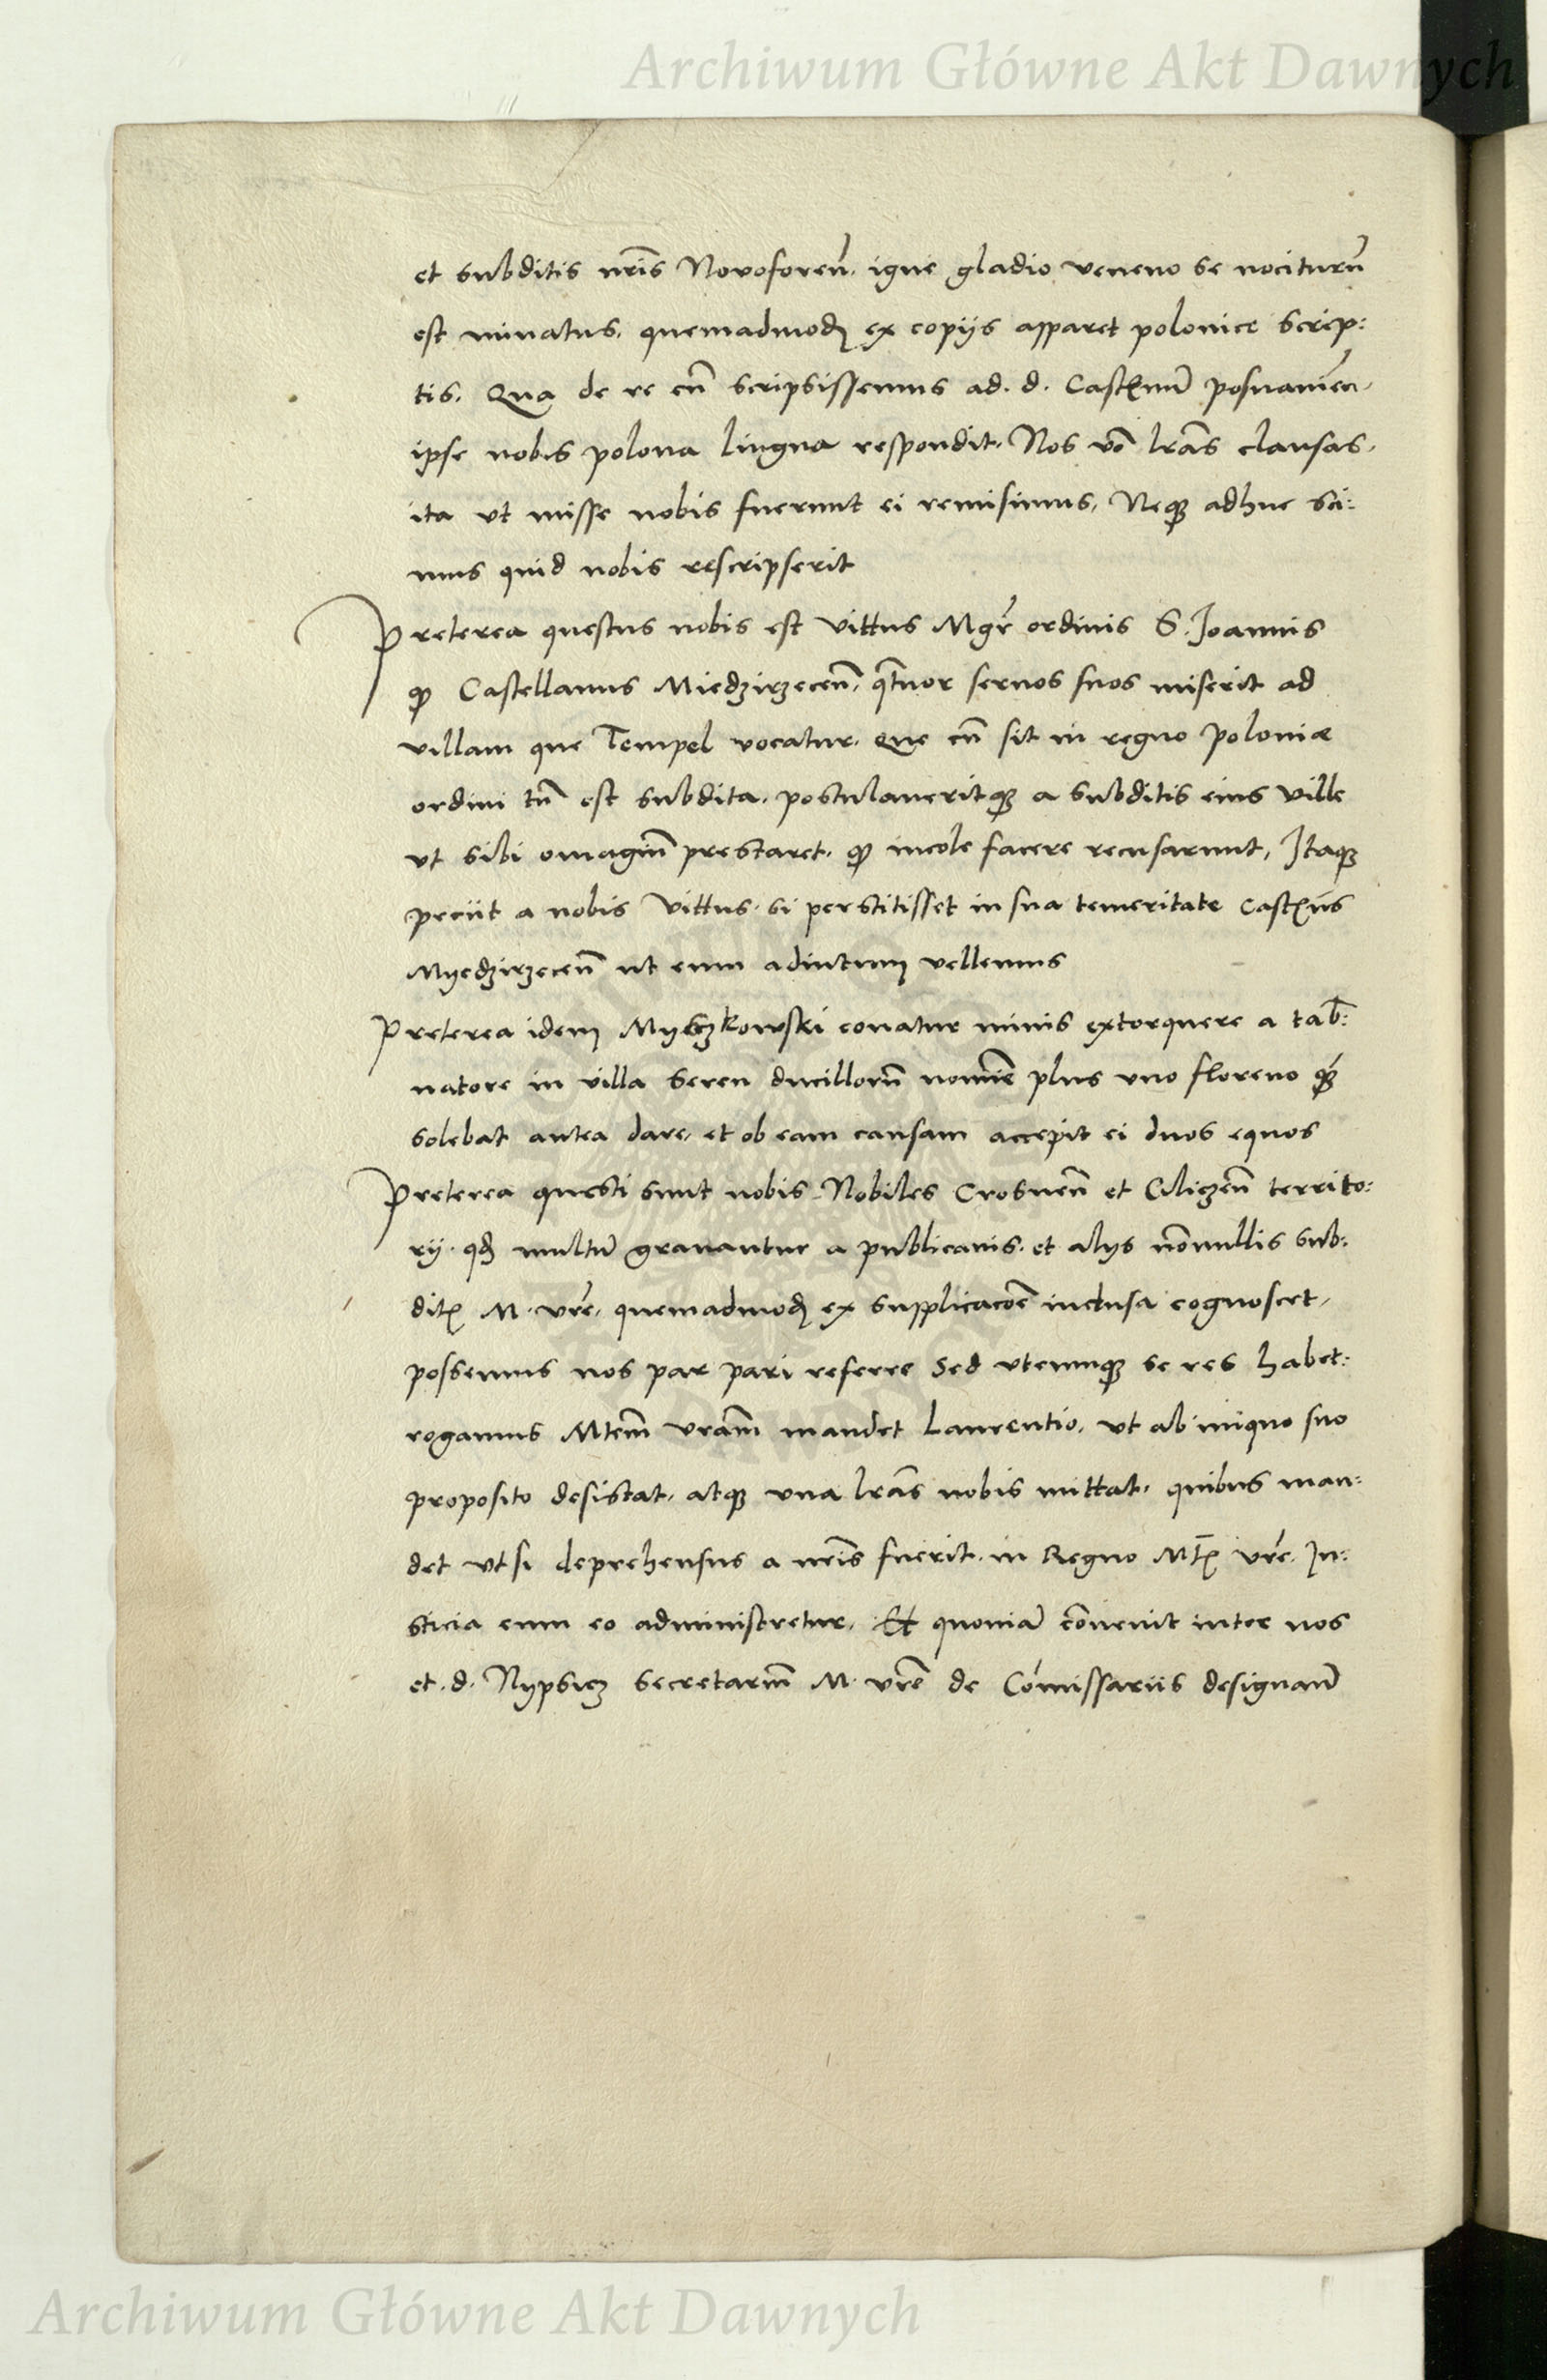 Archiwum Główne Akt Dawnych
et subditis nr̄is Novoforeñ. igne gladio veneno se nociturū
est minatus, quemadmodū ex copijs apparet polonice scrip:
tis. Qua de re cū scripsissemus ad. d. Castꝶnū posnanień.
ipse nobis polona lingua respondit. Nos vō lr̄as clausas.
ita vt misse nobis fuerunt ei remisimus, Neqꝫ adhuc sci:
mus quid nobis rescripserit
Preterea questus nobis est Vittus Mgr̄ ordinis S. Joannis
ꝙ Castellanus Miedzirzeceñ, q̄tuor seruos suos miserit ad
villam que Tempel vocatur. que cū sit in regno Poloniæ
ordini tn̄ est subdita. postulaueritqꝫ a subditis eius ville
vt sibi omagiū prestaret. ꝙ incole facere recusarunt, Itaqꝫ
peciit a nobis Vittus. si perstitisset in sua temeritate Castꝶus
Myedzirzeceñ ut eum adiutum vellemus
Preterea idem Myszkowski conatur nimis extorquere a tab̄:
natore in villa Seren ducillorū nomīe plus vno floreno qꝫ̄
solebat antea dare, et ob eam causam accepit ei duos equos
Preterea questi sunt nobis Nobiles Crosneñ et Ciliczeñ territo:
rij. qd̄ multū grauantur a publicanis. et alijs nōnullis sub:
ditꝭ M. vr̄e. quemadmodū ex supplicacōe inclusa cognoscet,
possemus nos par pari referre Sed vtcumqꝫ se res habet:
rogamus Mtem̄ vram̄ mandet Laurentio, vt ab iniquo suo
proposito desistat, atqꝫ vna lr̄as nobis mittat, quibus man:
det vt si deprehensus a nr̄is fuerit. in Regno Mtꝭ vr̄e. Ju:
sticia cum eo administretur. Et quoniā cōnenit inter nos
et. d. Nypsicz secretariū M. vr̄e de Cōmissariis designanđ
Archiwum Główne Akt Dawnych